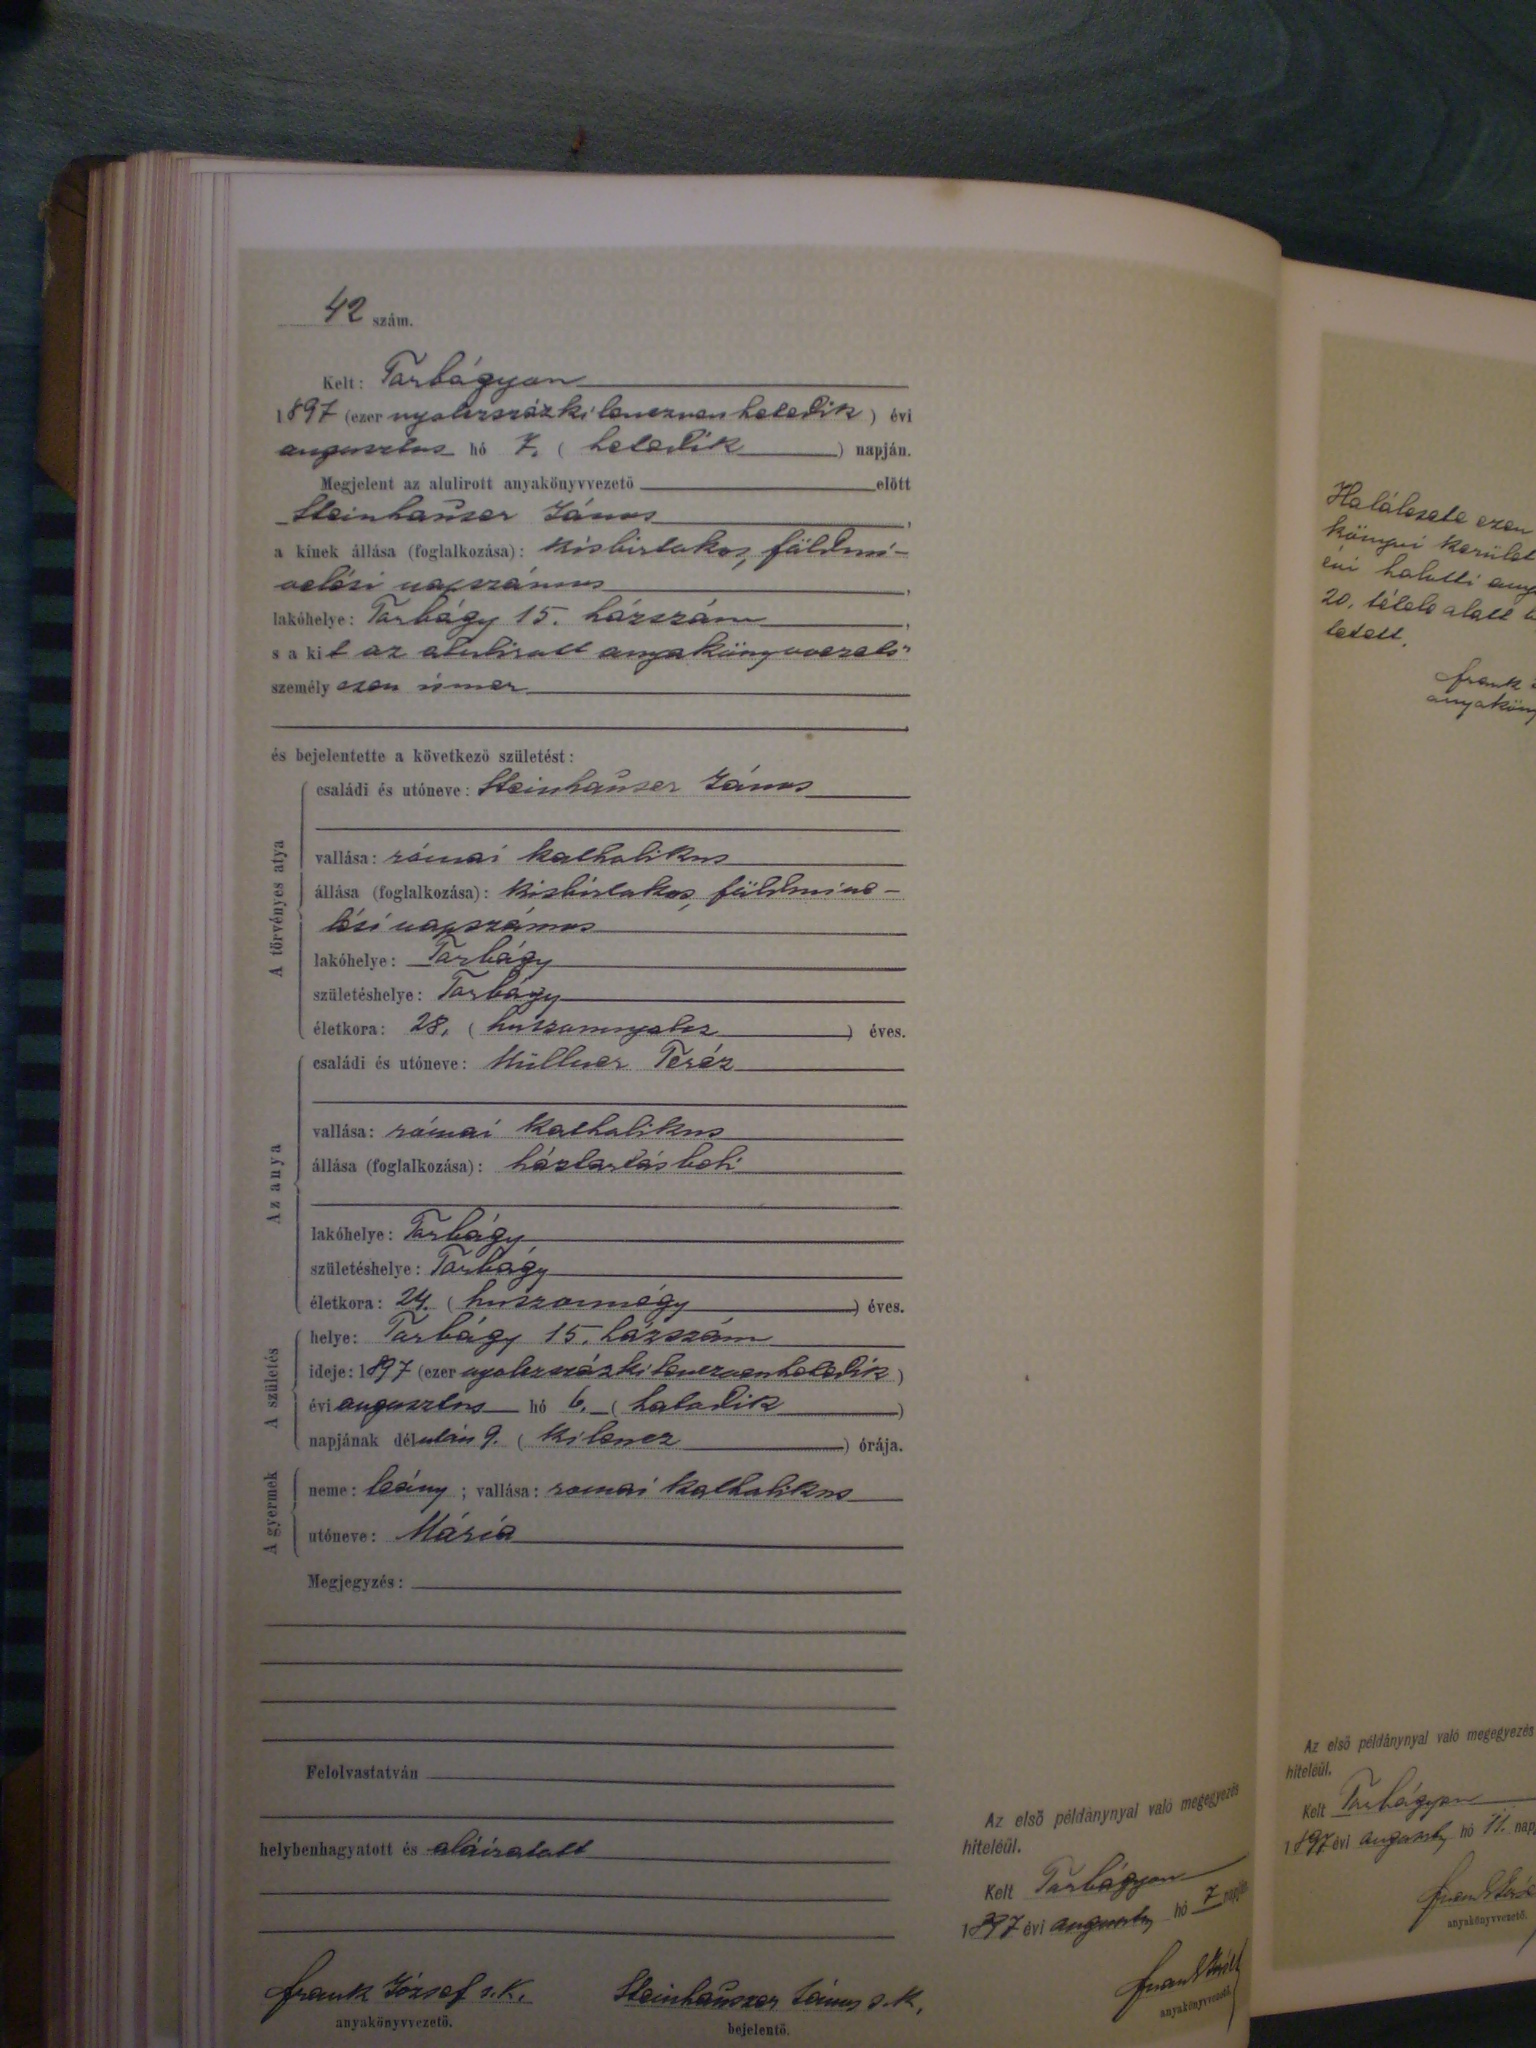 42 szám.
Kelt: Torbágyon
1897 (ezer nyolczszázkilenczvenhetedik) évi
augusztus hó 7. (hetedik) napján.
Megjelent az alulirott anyakönyvvezető előtt
Steinhauser János,
a kinek állása (foglalkozása): kisbirtokos, földmi-
velési napszámos,
lakóhelye: Torbágy 15. házszám,
s a kit az alulirott anyakönyvvezető
személyesen ismer
és bejelentette a következő születést:
A törvényes atya
családi és utóneve: Steinhauser János
vallása: római katholikus
állása (foglalkozása): kisbirtokos, földmive-
lési napszámos
lakóhelye: Torbágy
születéshelye: Torbágy
életkora: 28. (huszonnyolcz) éves.
Az anya
családi és utóneve: Müllner Teréz
vallása: római katholikus
állása (foglalkozása): háztartásbeli
lakóhelye: Torbágy
születéshelye: Torbágy
életkora: 24. (huszonnégy) éves.
A születés
helye: Torbágy 15. házszám
ideje: 1897 (ezer nyolczszázkilenczvenhetedik)
évi augusztus hó 6. (hatodik)
napjának délután 9. (kilencz) órája.
A gyermek
neme: leány; vallása: romai katholikus
utóneve: Mária
Megjegyzés:
Felolvastatván
helybenhagyatott és aláiratott
Frank József s. k.
anyakönyvvezető.
Steinhauszer János s. k.
bejelentő.
Az első példánynyal való megegyezés
hiteléül.
Kelt Torbágyon
1897 évi augusztus hó 7 napján
Frank József
anyakönyvvezető.
Halálesete ezen
könyvi kerület
évi halotti
20. tétele alatt
tetett.
Frank
Az első példánynyal való megegyezés
hiteléül.
Kelt Torbágyon
1897 évi augusztus hó 11.
Frank József
anyakönyvvezető.